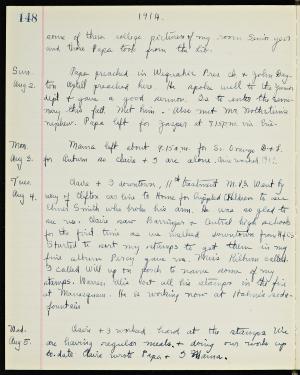 148
1914.
some of these college pictures of my room Senior year
and views Papa took from the
Sun. Aug 2.
Papa preached in Pres ch & John Day-
ton preached here. He spoke well to the Junior
dept & gave a good sermon. Is to enter the Semi-
nary this fall. Met him. Also met Mr.
nephew. Papa left for Jasper at 9.15 P.M. via
Mon. Aug 3.
Mama left about 9.15 A.M. for S. Orange B & I.
for Auburn so Claire & I are alone.
Tues. Aug 4.
Claire & I downtown, 11th treatment M.B. Went by
way of Clifton car line to Home for Crippled Children to see
Elmer Smith who broke his arm. He was so glad to
see us. Claire saw Barringer & Central high schools
for the first time as we walked downtown from
Started to sort my stamps to get them in my
fine album Percy gave me. Miss called.
I called Will up on porch to name some of my
stamps. Warren lost all his stamps in the fire
at Manasquan. He is working now at soda-
fountain
Wed. Aug 5.
Claire & I worked hard at the stamps. We
are having regular meals, & doing our work up
to-date. Claire wrote Papa & I Mama.